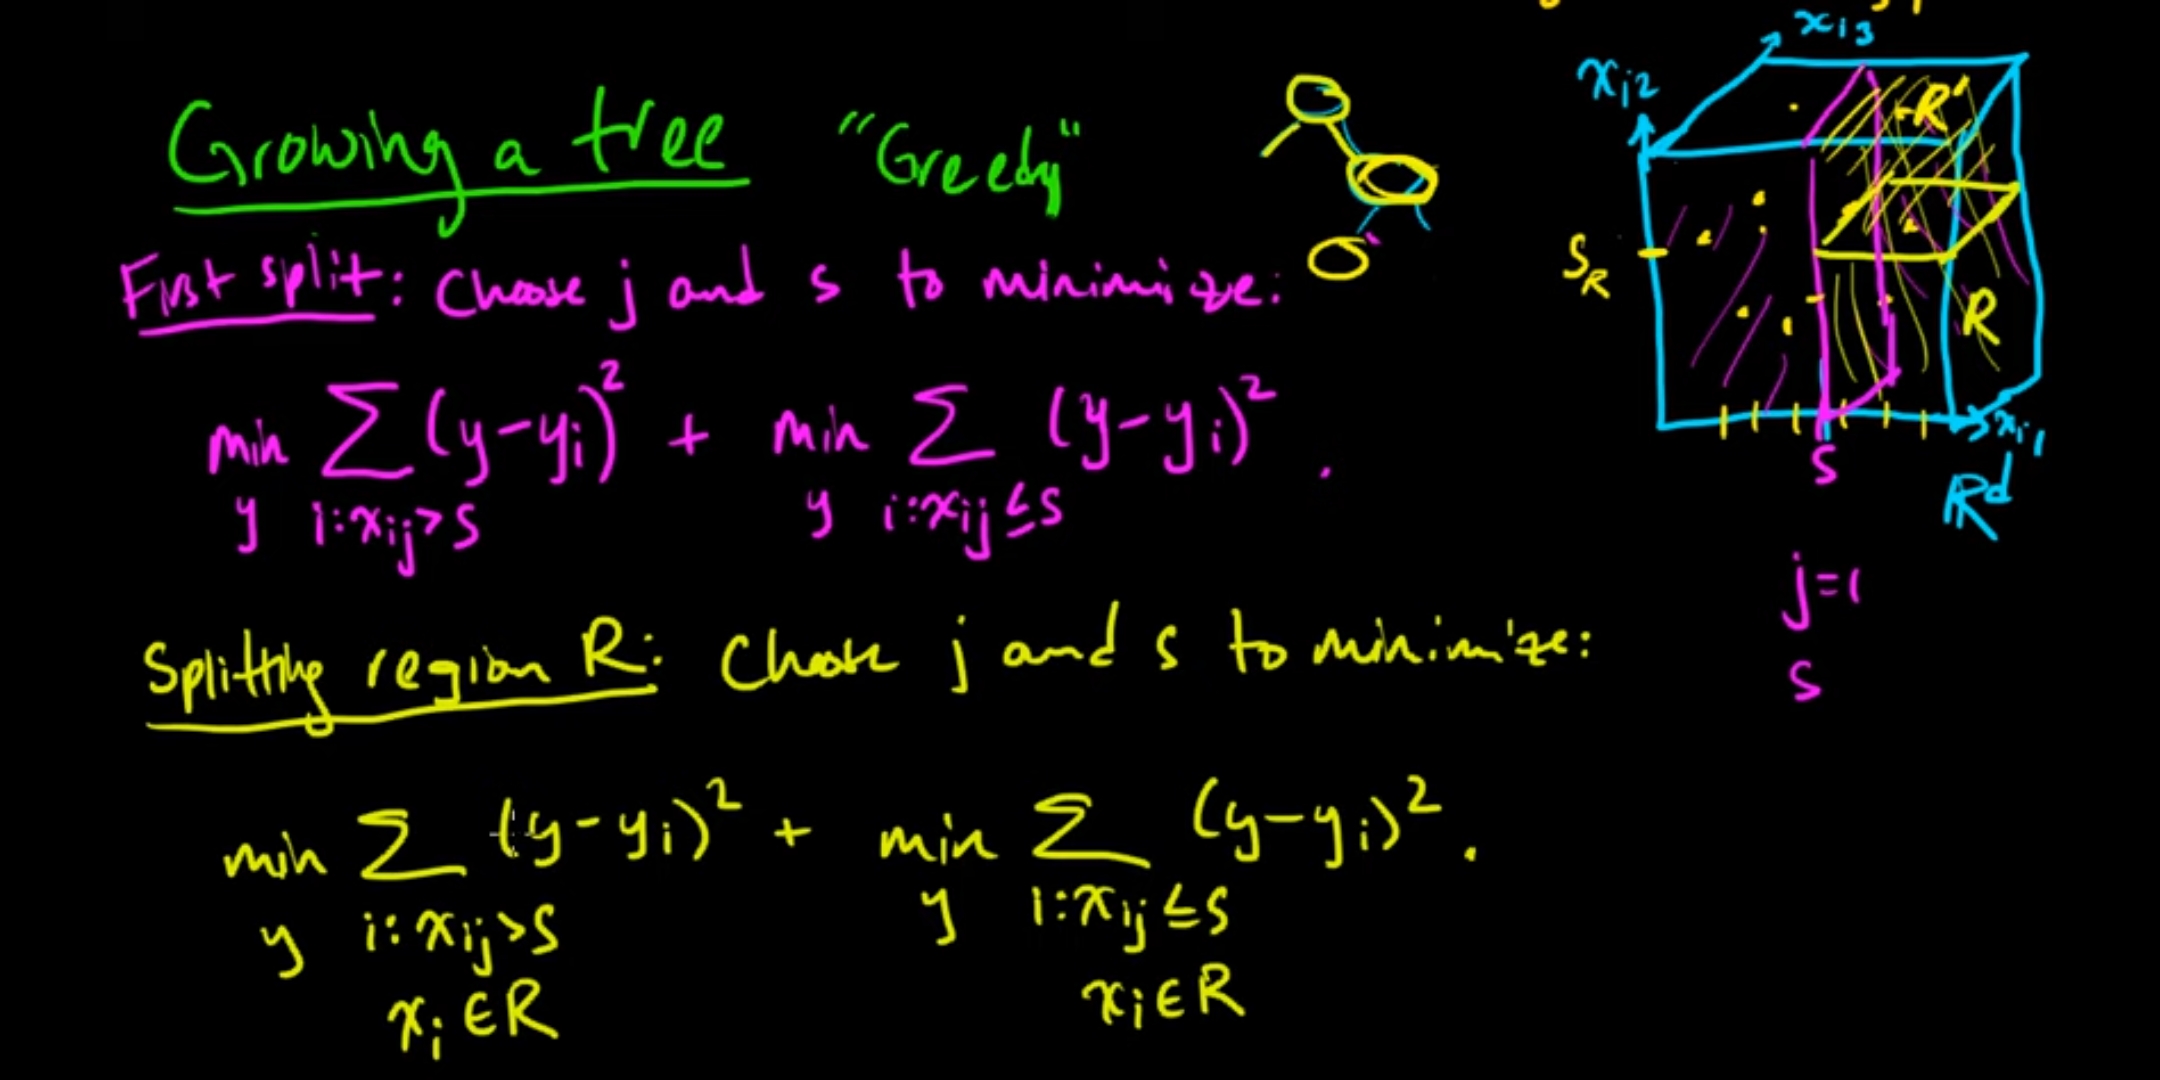 Growing a tree "Greedy"
First split: Choose j and s to minimize:
min Σ (y-yi)² + min Σ (y-yi)² .
y i:xij>s y i:xij≤s
Splitting region R: Choose j and s to minimize:
min Σ (y-yi)² + min Σ (y-yi)² .
y i:xij>s y i:xij≤s
xi∈R xi∈R
xi3
xi2
R'
SR
R
xi1
s
ℝd
j=1
s